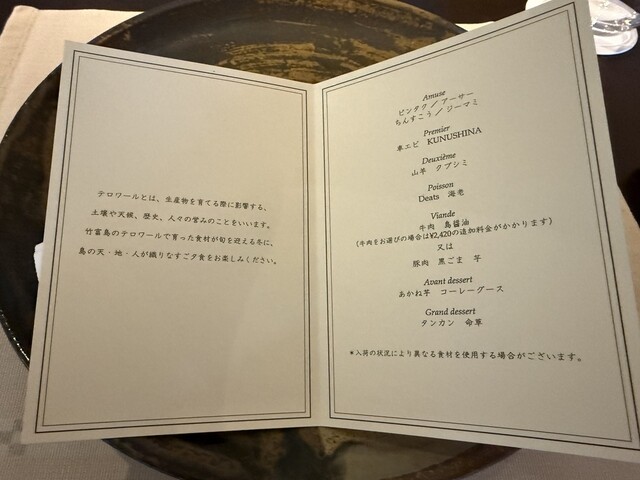 テロワールとは、生産物を育てる際に影響する、
土壌や天候、歴史、人々の営みのことをいいます。
竹富島のテロワールで育った食材が旬を迎える冬に、
島の天・地・人が織りなすご夕食をお楽しみください。
Amuse
ピンタク／アーサー
ちんすこう／ジーマミ
Premier
車エビ KUNUSHINA
Deuxième
山羊 クブシミ
Poisson
Deats 海老
Viande
牛肉 島醤油
(牛肉をお選びの場合は¥2,420の追加料金がかかります)
又は
豚肉 黒ごま 芋
Avant dessert
あかね芋 コーレーグース
Grand dessert
タンカン 命草
＊入荷の状況により異なる食材を使用する場合がございます。